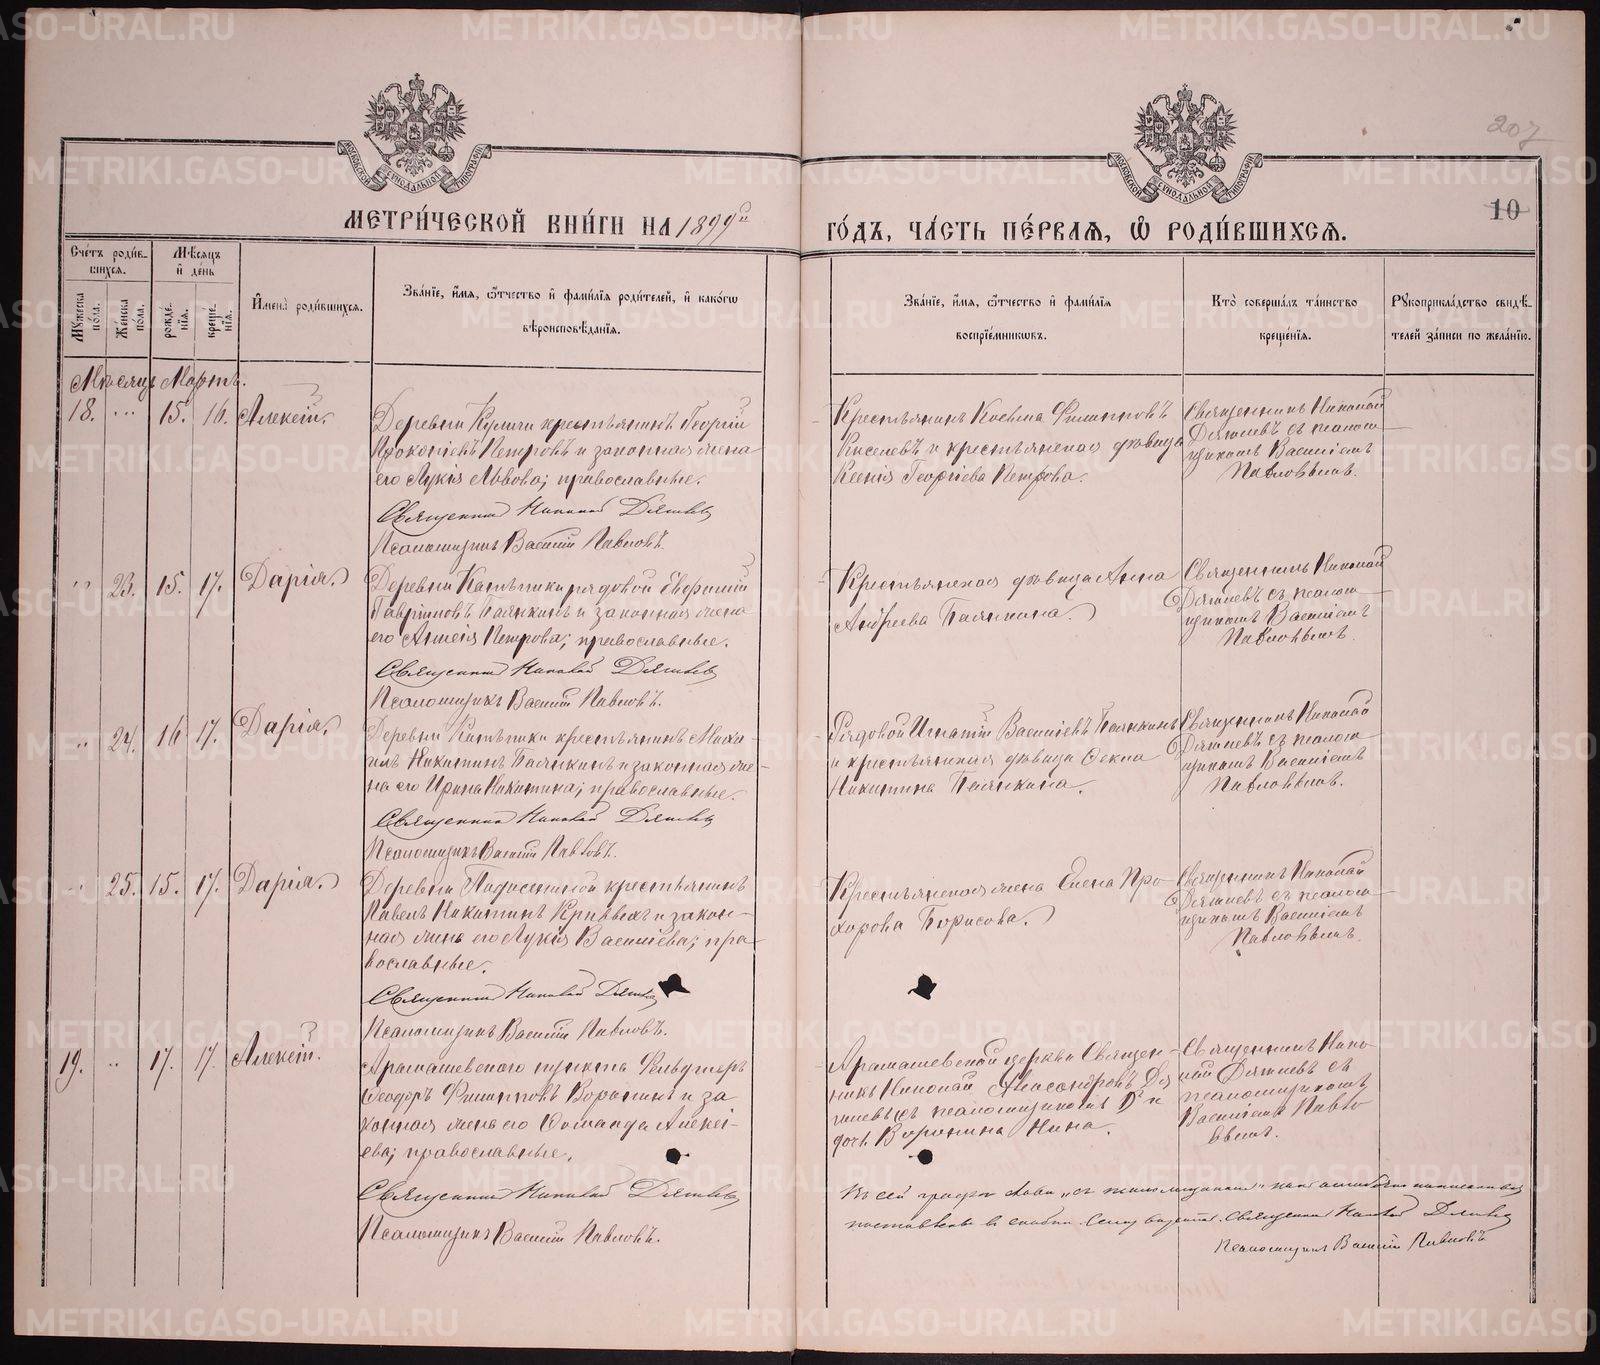 МЕТРИ́ЧЕСКОЙ КНИ́ГИ НА 1899й
ГО́ДЪ, ЧА́СТЬ ПЕ́РВАѦ, Ѡ҆ РОДИ́ВШИХСѦ.
207
10
Сче́тъ роди́вшихсѧ.
Мꙋжеска по́ла.
Же́нска по́ла.
Мѣ́сѧцъ и҆ де́нь
рожде́нїѧ.
креще́нїѧ.
И҆мена̀ роди́вшихсѧ.
Зва́нїе, и҆́мѧ, ѻ҆́тчество и҆ фамѵ́лїѧ роди́телей, и҆ како́гѡ
вѣроисповѣ́данїѧ.
Зва́нїе, и҆́мѧ, ѻ҆́тчество и҆ фамѵ́лїѧ
воспрїе́мникѡвъ.
Кто̀ соверша́лъ та́инство
креще́нїѧ.
Рꙋкоприкла́дство свидѣ́-
телей за́писи по жела́нїю.
Мѣсяцъ Мартъ.
18. " 15. 16. Алексій.
Деревни Кулиги крестьянинъ Георгій
Прокопіевъ Петровъ и законная жена
его Лукія Львова; православные.
Священникъ Николай Дягилевъ
Псаломщикъ Василій Павловъ.
Крестьянинъ Косьма Филипповъ
Киселевъ и крестьянская дѣвица
Ксенія Георгіева Петрова.
Священникъ Николай
Дягилевъ съ псалом-
щикомъ Василіемъ
Павловымъ.
" 23. 15. 17. Дарія.
Деревни рядовой Евфимій
Гавріиловъ и законная жена
его Петрова; православные.
Священникъ Николай Дягилевъ
Псаломщикъ Василій Павловъ.
Крестьянская дѣвица Анна
Андреева
Священникъ Николай
Дягилевъ съ псалом-
щикомъ Василіемъ
Павловымъ.
" 24. 16 17. Дарія.
Деревни крестьянинъ Миха-
илъ Никитинъ и законная же-
на его Ирина Никитина; православные.
Священникъ Николай Дягилевъ
Псаломщикъ Василій Павловъ.
Рядовой Игнатій Василіевъ
и крестьянская дѣвица Фекла
Никитина
Священникъ Николай
Дягилевъ съ псалом-
щикомъ Василіемъ
Павловымъ.
" 25. 15. 17. Дарія.
Деревни крестьянинъ
Павелъ Никитинъ Кривыхъ и закон-
ная жена его Лукія Василіева; пра-
вославные.
Священникъ Николай Дягилевъ
Псаломщикъ Василій Павловъ.
Крестьянская жена Елена Про-
хорова Борисова.
Священникъ Николай
Дягилевъ съ псалом-
щикомъ Василіемъ
Павловымъ.
19. " 17. 17. Алексій.
Арамашевского пункта Фельдшеръ
Феодоръ Филипповъ Воронинъ и за
конная жена его Алексі-
ева; православные.
Священникъ Николай Дягилевъ
Псаломщикъ Василій Павловъ.
Арамашевской церкви Священ-
никъ Николай Александровъ Дя
гилевъ съ псаломщикомъ и
дочь Воронина Нина.
Священникъ Нико-
лай Дягилевъ съ
псаломщикомъ
Василіемъ Павло
вымъ.
Въ сей графѣ слова „съ псаломщикомъ" какъ ошибочно написанныя
поставлены въ скобки. Священникъ Николай Дягилевъ
Псаломщикъ Василій Павловъ
METRIKI.GASO-URAL.RU